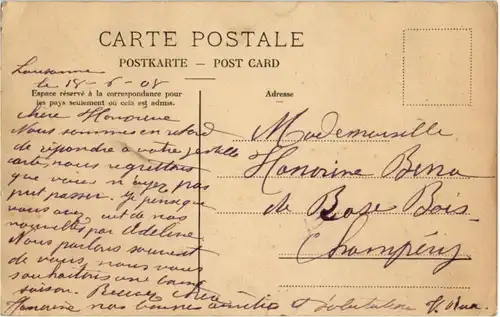 CARTE POSTALE
POSTKARTE — POST CARD
Lausanne
le 18-6-08
Espace réservé à la correspondance pour
les pays seulement où cela est admis.
Adresse
chère Honorine
Nous sommes en retard
de répondre a votre gentille
carte, nous regrettons
que vous n'ayez pas
put passer. je pense que
vous avez eut de nos
nouvelles par Adeline
Nous parlons souvent
de vous, nous vous
souhaitons une bonne
saison. Recevez chère
Honorine nos bonnes amitiés
Mademoiselle
Honorine
de Bose Bois
Champéry